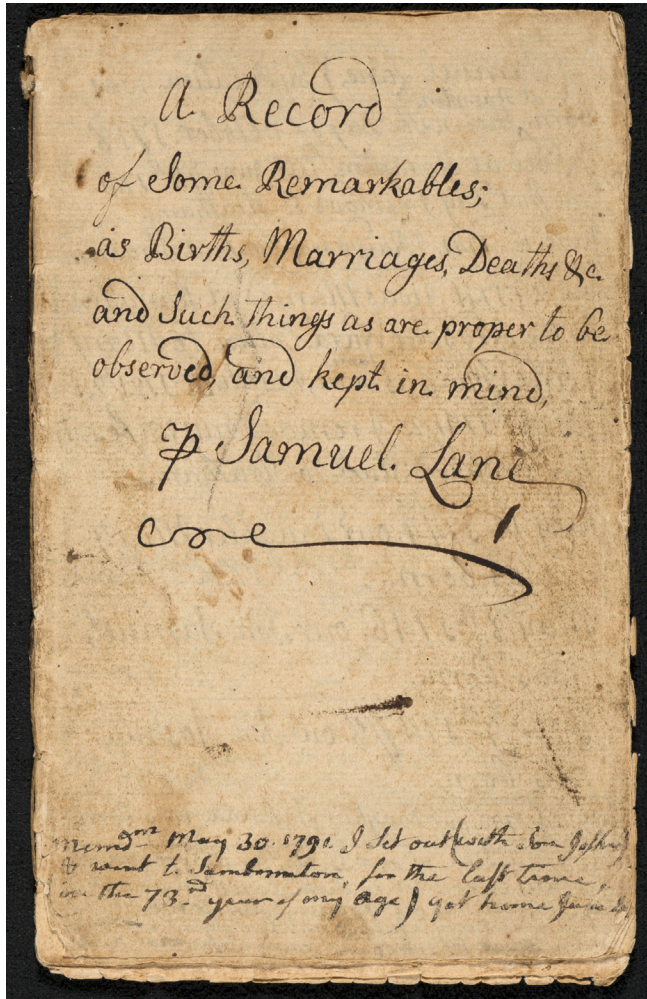 A Record
of Some Remarkables;
as Births, Marriages, Deaths &c.
and Such things as are proper to be
observed, and kept in mind,
⅌ Samuel Lane
Memdm May 30. 1791. I Set out (with Son
& went to Sambornton, for the last time,
in the 73.rd year of my Age) got home June